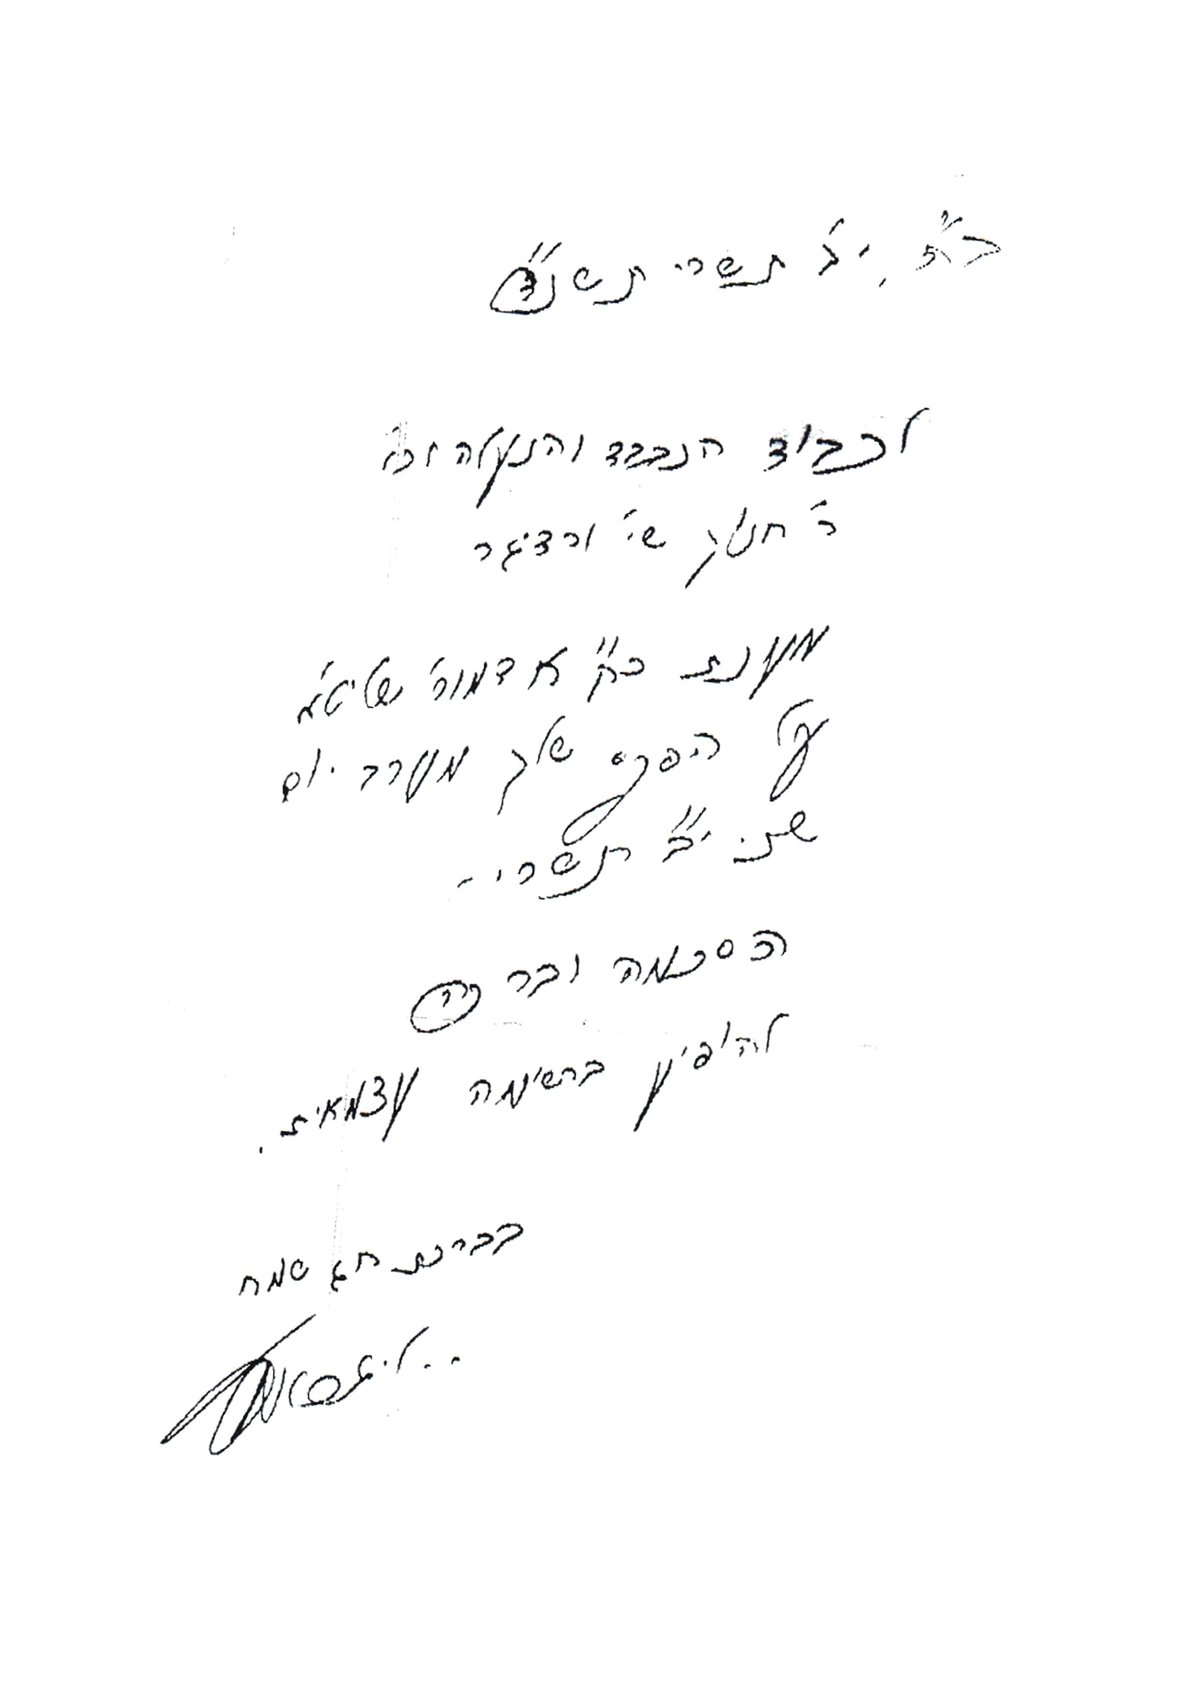 ב"ה, י"ב תשרי תשנ"ד
לכבוד הנכבד והנעלה וכו'
ר' חנוך שי' ורדיגר
מענת כ"ק אדמור שליט"א
על הפקס שלך מערב יום
שני י"ב תשרי -
הסכמה וברכה
להופיע ברשימה עצמאית.
בברכת חג שמח